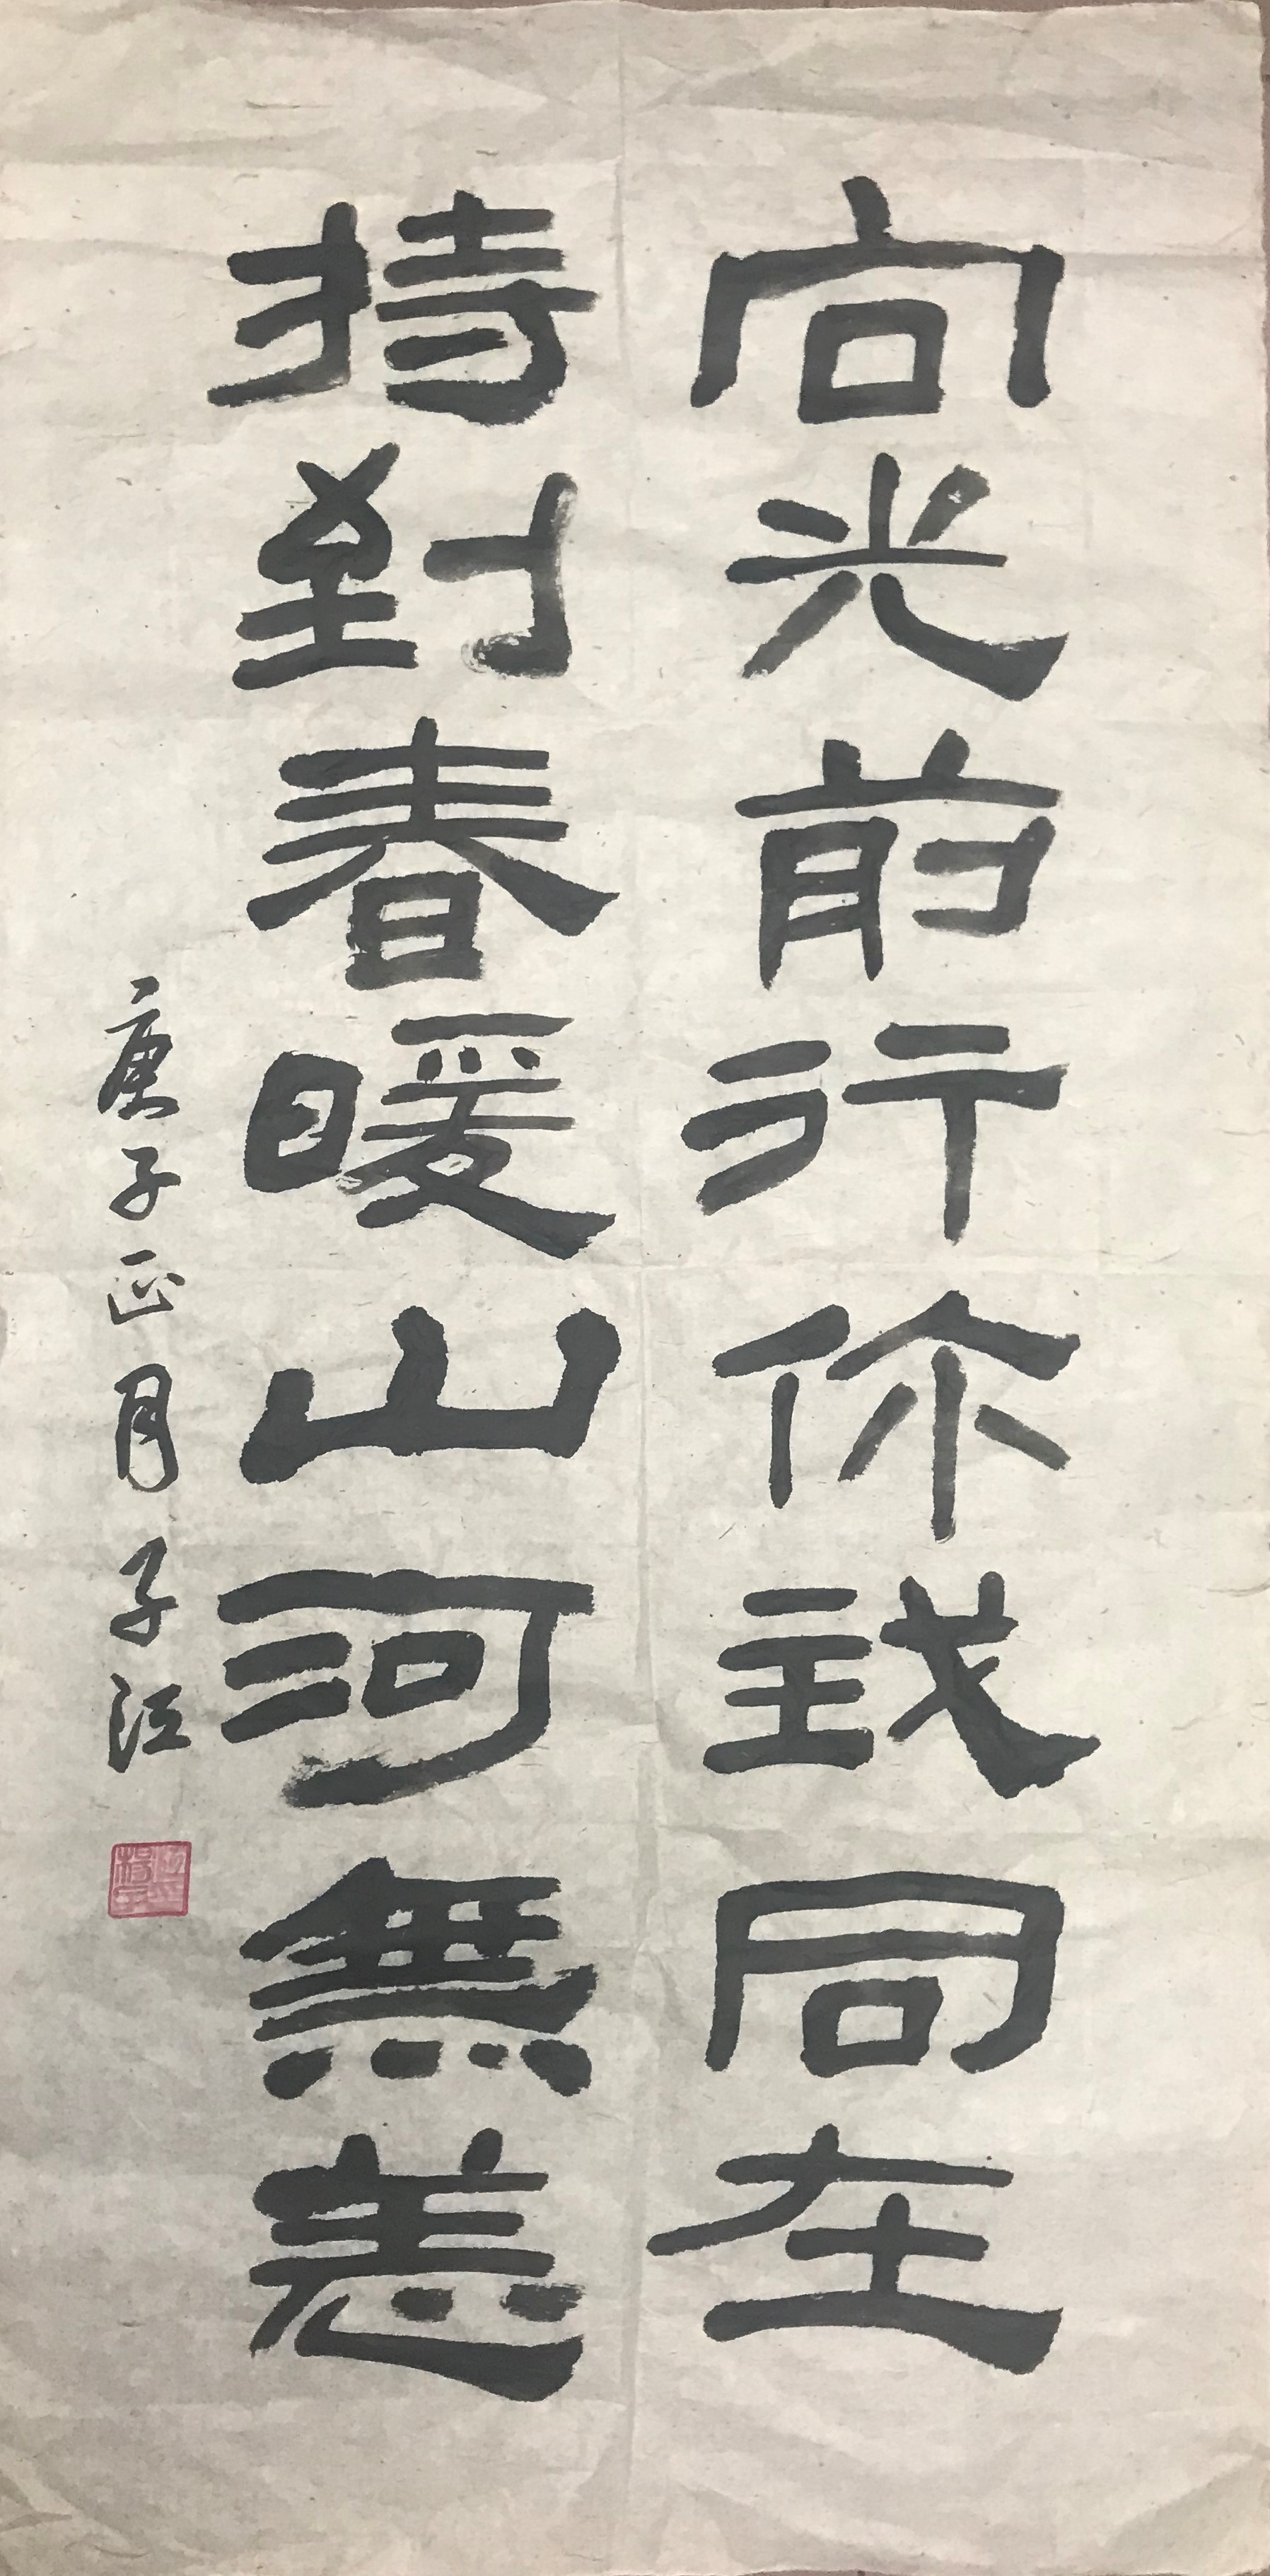 向光前行你我同在
持到春暖山河無恙
庚子正月子江